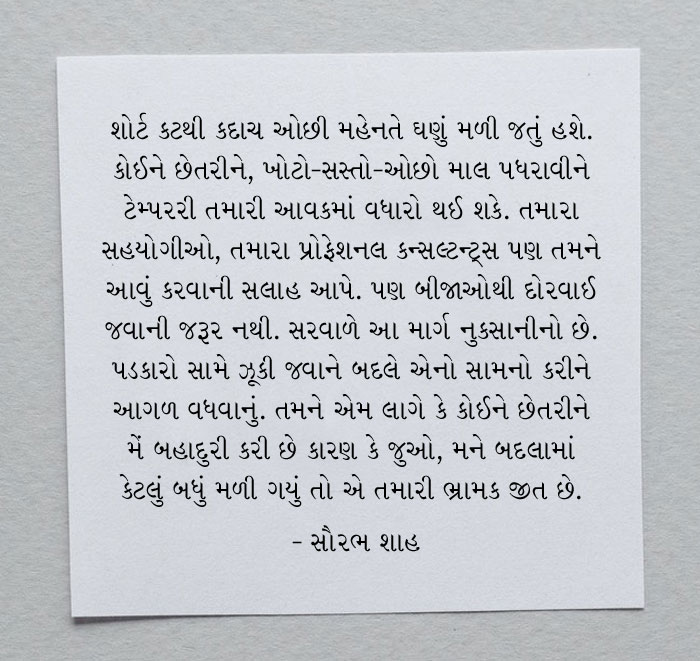 શોર્ટ કટથી કદાચ ઓછી મહેનતે ઘણું મળી જતું હશે.
કોઈને છેતરીને, ખોટો-સસ્તો-ઓછો માલ પધરાવીને
ટેમ્પરરી તમારી આવકમાં વધારો થઈ શકે. તમારા
સહયોગીઓ, તમારા પ્રોફેશનલ કન્સલ્ટન્ટ્સ પણ તમને
આવું કરવાની સલાહ આપે. પણ બીજાઓથી દોરવાઈ
જવાની જરૂર નથી. સરવાળે આ માર્ગ નુકસાનીનો છે.
પડકારો સામે ઝૂકી જવાને બદલે એનો સામનો કરીને
આગળ વધવાનું. તમને એમ લાગે કે કોઈને છેતરીને
મેં બહાદુરી કરી છે કારણ કે જુઓ, મને બદલામાં
કેટલું બધું મળી ગયું તો એ તમારી ભ્રામક જીત છે.
- સૌરભ શાહ